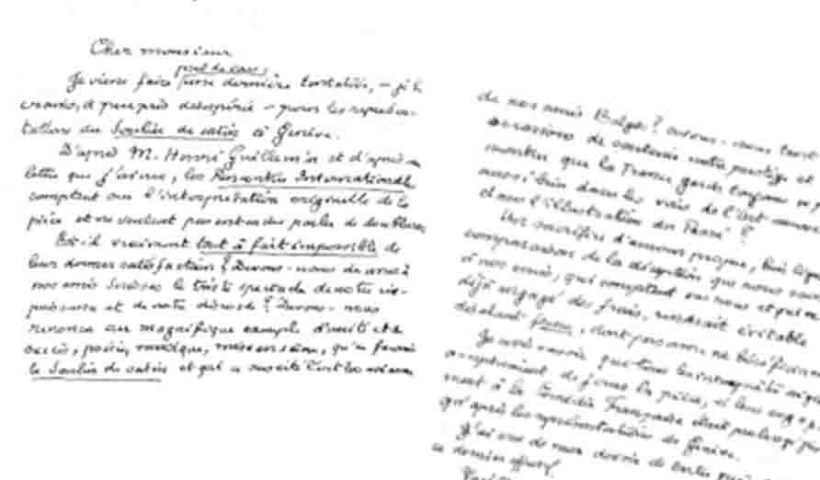 Cher monsieur
peut-être
Je viens faire une dernière tentative, – je le
crains, à peu près désespérée – pour les représen-
tations du Soulier de satin à Genève.
D'après M. Henri Guillemin et d'après
lettre que j'ai reçue, les Rencontres Internationales
comptent sur l'interprétation originelle de la
pièce et ne veulent pas entendre parler de doublures
Est-il vraiment tout à fait impossible de
leur donner satisfaction ? Devons-nous donner à
nos amis Suisses le triste spectacle de notre im-
puissance et de notre discorde ? Devons-nous
renoncer au magnifique exemple d'unité et de
succès, poésie, musique, mise en scène, qu'a fourni
le Soulier de satin et qui a suscité tout
de nos amis Belges ? avons-nous tant
occasions de soutenir notre prestige et
montrer que la France garde toujours
aussi bien dans les voies de l'art
dans l'illustration du Passé ?
Un sacrifice d'amour propre, bien
comparaison de la déception que nous
à nos amis, qui comptent sur nous et qui
déjà engagé des frais, rendrait évitable
désolant
Je sais que tous les interprètes
accepteraient de jouer la pièce, si leur
ment à la Comédie Française était prolongé
qu'après les représentations de Genève.
J'ai cru de mon devoir de tenter
ce dernier effort.